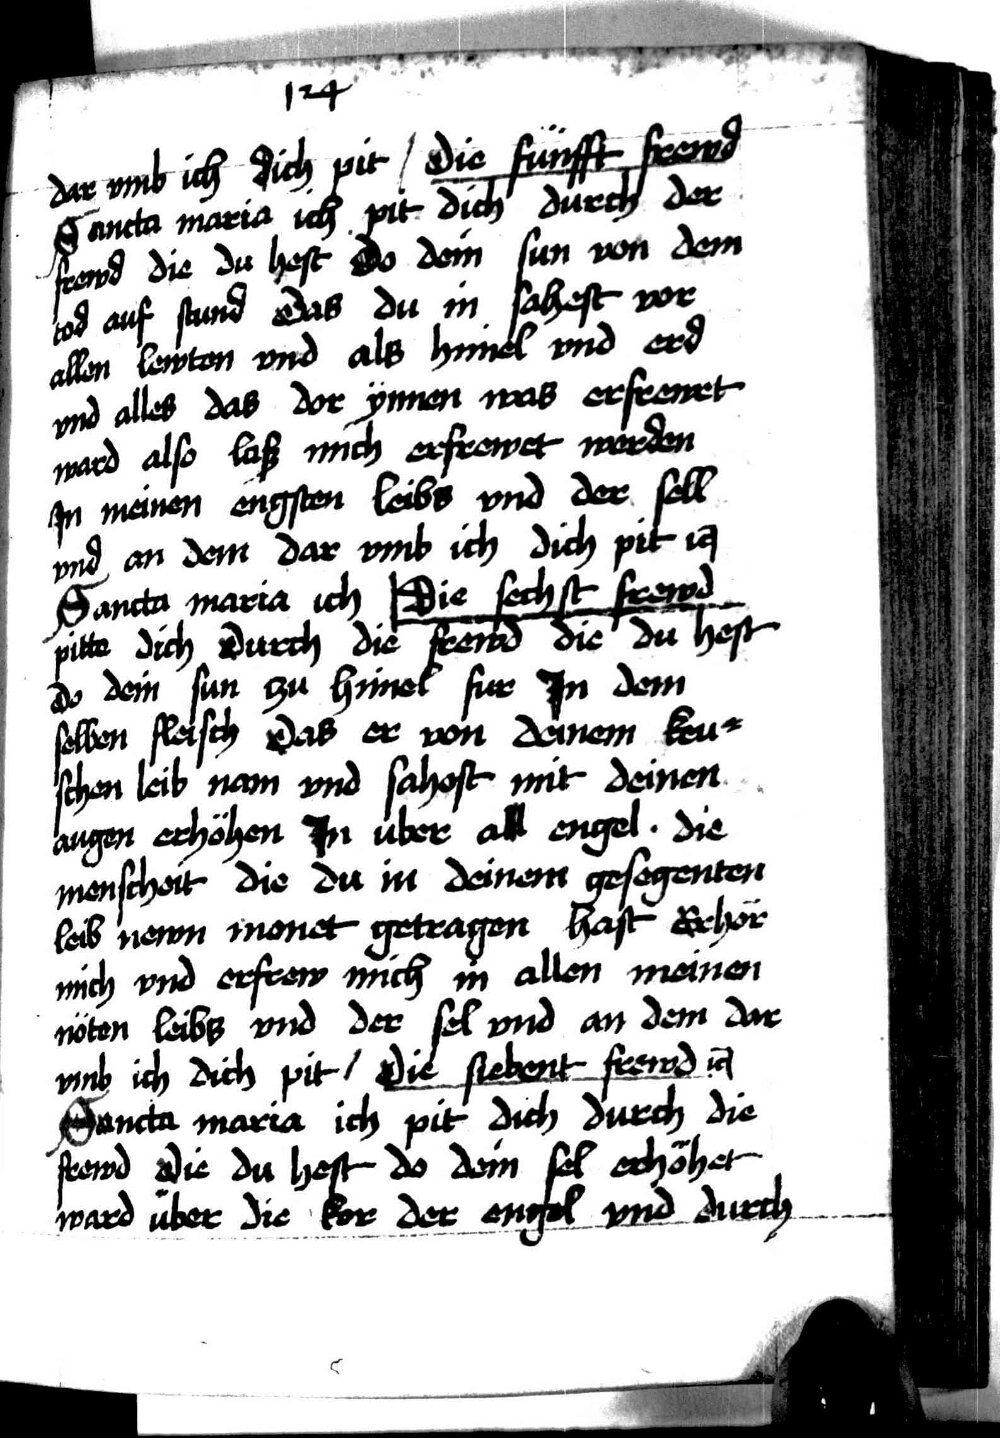 124
dar vmb ich dich pit / Die fünfft frewd
Sancta maria ich pit dich durch der
frewd die du hest Do dein sun von dem
tod auf stund Das du in sahest vor
allen lewten vnd als himel vnd erd
vnd alles das dor ynnen was erfrewet
ward also laß mich erfrewet werden
In meinen engsten leibs vnd der sell
vnd an dem dar vmb ich dich pit
Sancta maria ich Die sechst frewd
pitte dich Durch die frewd die du hest
do dein sun zu himel fur In dem
selben fleisch Das er von deinem keu=
schen leib nam vnd sahest mit deinen
augen erhöhen In uber all engel . die
menscheit die du in deinem gesegenten
leib newn monet getragen hast Erhör
mich vnd erfrew mich in allen meinen
nöten leibs vnd der sel vnd an dem dar
vmb ich dich pit / Die siebent frewd
Sancta maria ich pit dich durch die
frewd Die du hest do dein sel erhöhet
ward über die kor der engel vnd durch